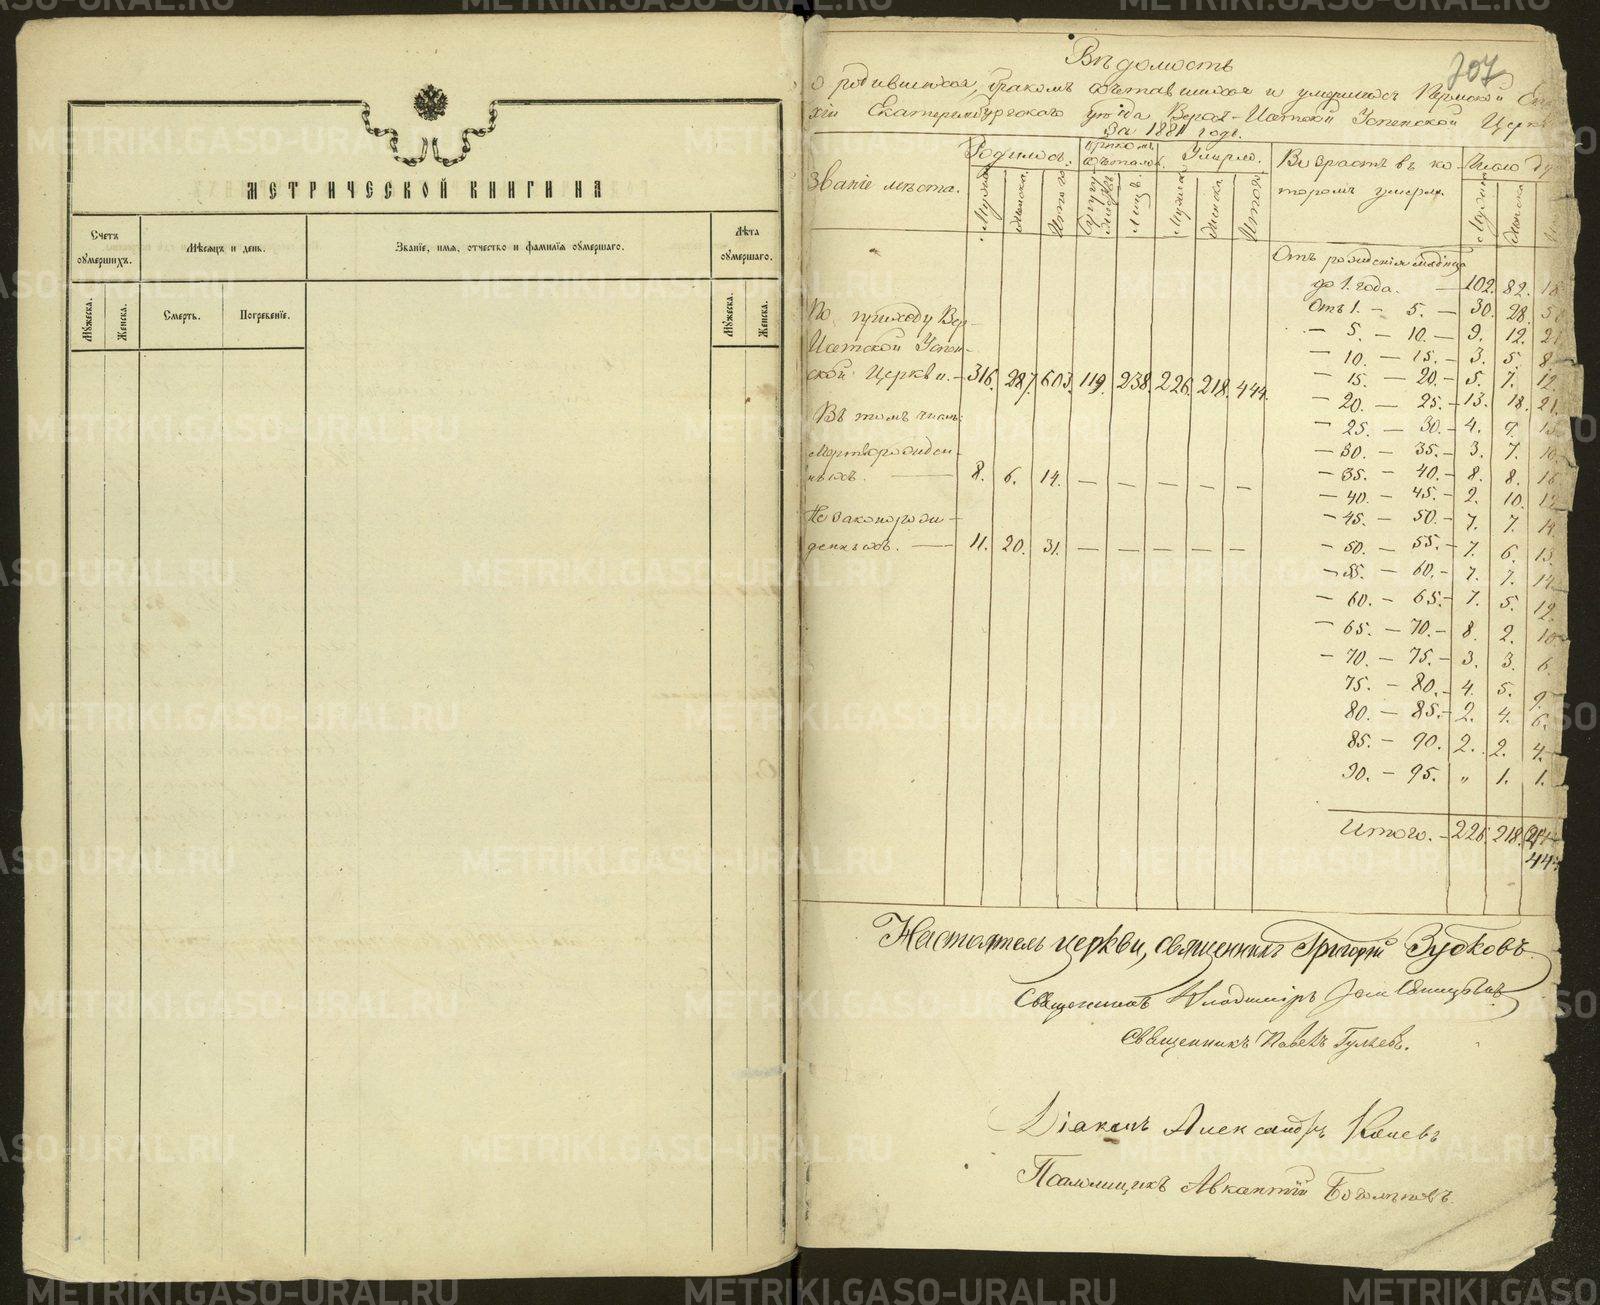 МЕТРИЧЕСКОЙ КНИГИ НА
Счетъ оумершихъ.
Мѣсяцъ и день.
Званіе, имя, отчество и фамилія оумершаго.
Лѣта оумершаго.
Мужеска.
Женска.
Смерть.
Погребеніе.
Мужеска.
Женска.
707
Вѣдомость
о родившихся, бракомъ сочетавшихся и умершихъ Пермской Епар
хіи Екатеринбургскаго уѣзда Верхъ-Исетской Успенской Церкви
За 1881 годъ.
Званіе мѣста.
Родилось.
бракомъ сочетало
Умерло.
Возрастъ въ ко-
торомъ умерли.
Число ду
Мужеска
Женска
Итого
Лицъ.
Мужеска
Женска.
Итого
Мужеска
Женска
Отъ рожденія младенца
до 1. года. — 102. 82. 18
Отъ 1. — 5. — 30. 28. 58
— 5. — 10. — 9. 12. 21
— 10. — 15. — 3. 5. 8.
— 15. — 20. — 5. 7. 12.
— 20. — 25. — 13. 18. 21.
— 25. — 30. — 4. 9.
— 30. — 35. — 3. 7. 10.
— 35. — 40. — 8. 8. 16
— 40. — 45. — 2. 10. 12
— 45. — 50. — 7. 7. 14
— 50. — 55. — 7. 6. 13.
— 55. — 60. — 7. 7. 14
— 60. — 65. — 7. 5. 12.
— 65. — 70. — 8. 2. 10
— 70. — 75. — 3. 3. 6.
75. — 80. — 4. 5. 9.
80. — 85. — 2. 4. 6.
85. — 90. 2. 2. 4.
90. — 95. „ 1. 1.
Итого. — 226. 218.
444
По приходу Вер-
Исетской Успен-
ской Церкви. — 316. 287. 603. 119. 238. 226. 218. 444.
Въ томъ числѣ:
Мертворожден-
ныхъ. — 8. 6. 14. — — — — —
Незаконорож-
денныхъ. — 11. 20. 31. — — — — —
Настоятель церкви, священникъ Григорій Зубковъ
Священникъ Владиміръ
Священникъ Павелъ Гуляевъ.
Діаконъ Александръ Коневъ
Псаломщикъ
METRIKI.GASO-URAL.RU